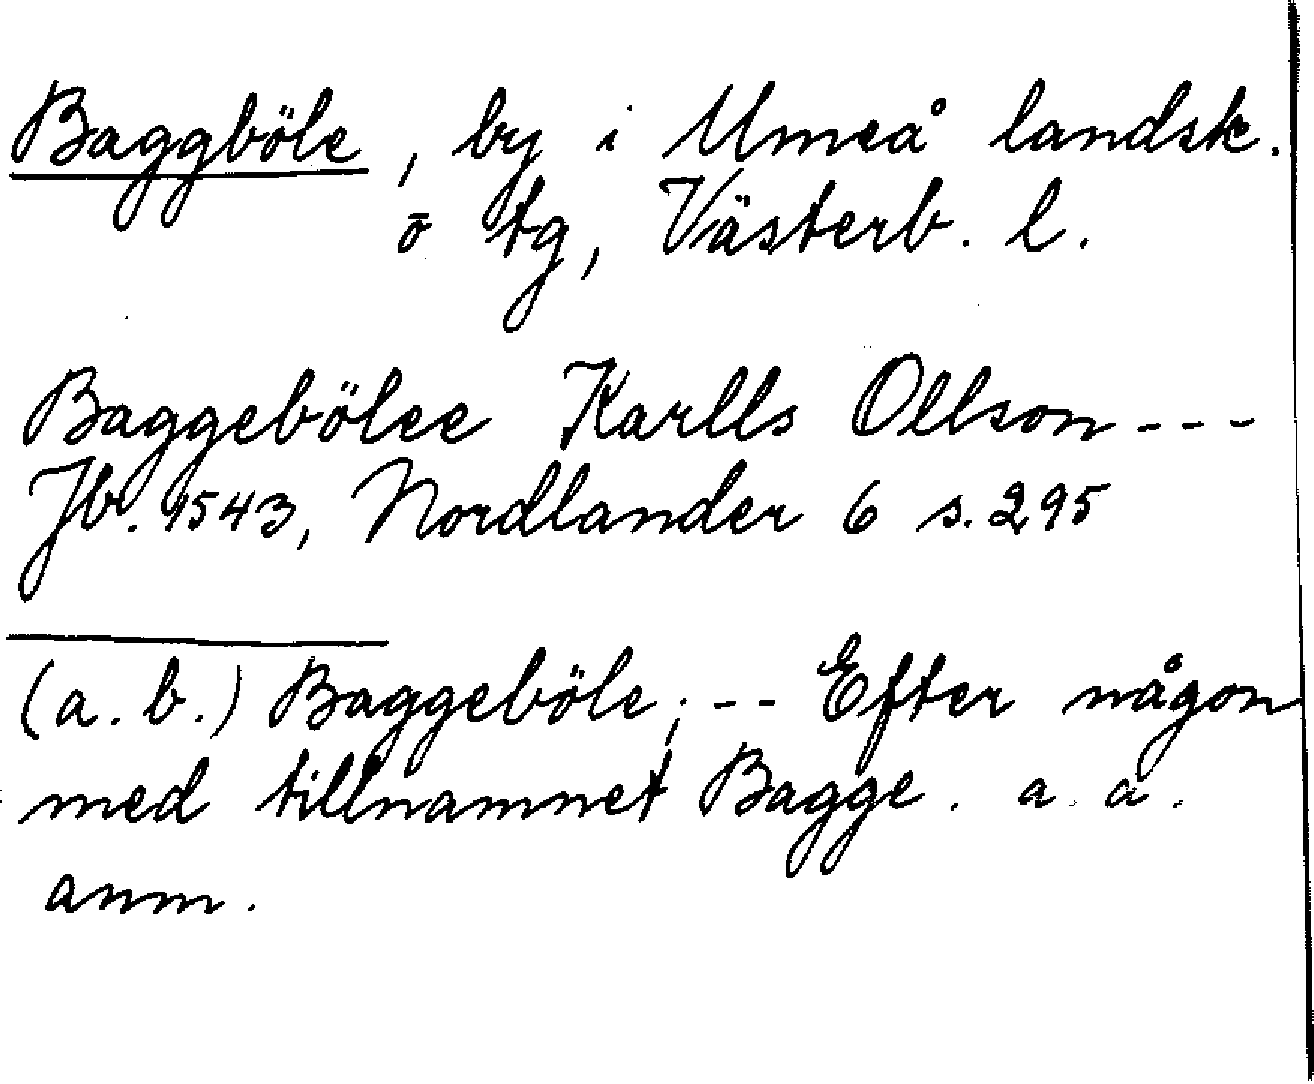 Baggböle, by i Umeå landsk.
o tg, Västerb. l.
Baggebölee Karlls Ollson---
Jb. 1543, Nordlander 6 s. 295
(a. b.) Baggeböle; -- Efter någon
med tillnamnet Bagge. a. a.
anm.